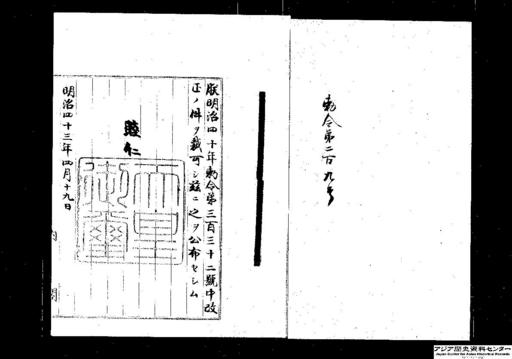 勅令第二百九号
朕明治四十年勅令第三百三十二號中改
正ノ件ヲ裁可シ茲ニ之ヲ公布セシム
睦仁
天皇
御璽
明治四十三年四月十九日
内閣
アジア歴史資料センター
Japan Center for Asian Historical Records